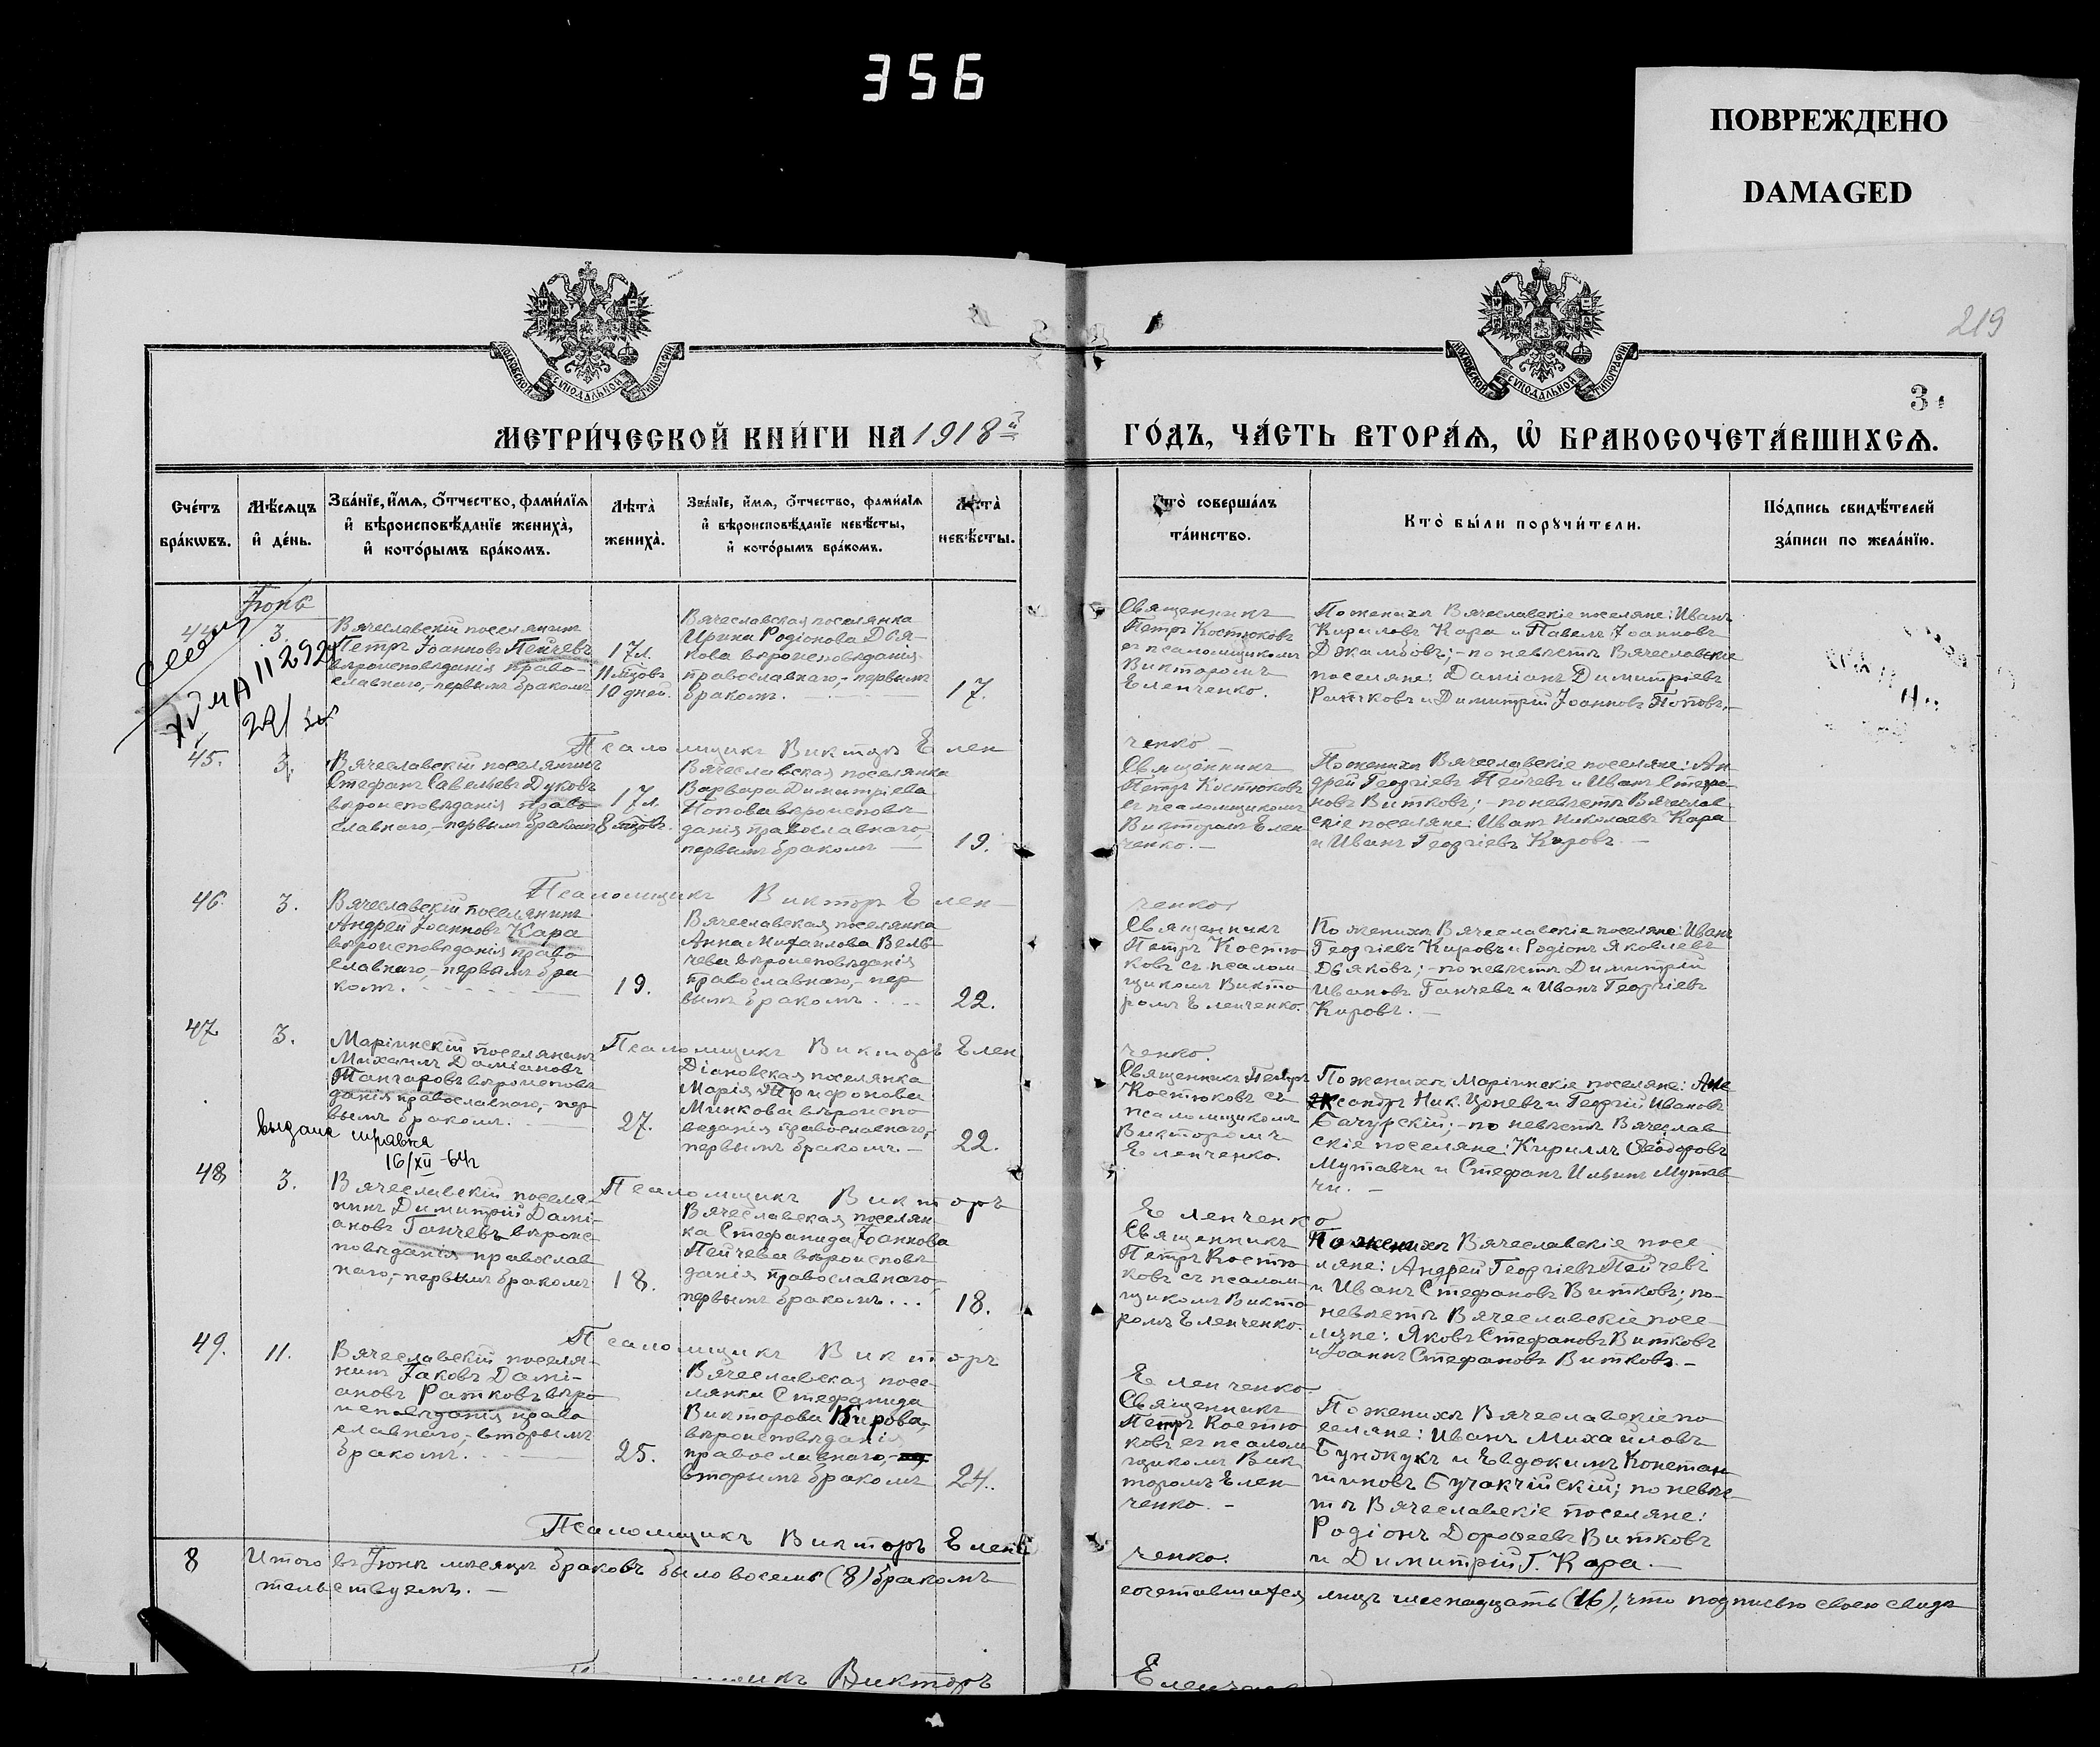 356
ПОВРЕЖДЕНО
DAMAGED
219
3
МЕТРИ́ЧЕСКОЙ КНИ́ГИ НА 1918й
ГО́ДЪ, ЧА́СТЬ ВТОРА́Я, Ѡ҆ БРАКОСОЧЕТА́ВШИХСЯ.
Сче́тъ
бра́ковъ.
Мѣ́сяцъ
и҆ де́нь.
Зва́нїе, и҆́мя, ѻ҆́тчество, фами́лїя
и҆ вѣроисповѣ́данїе жениха̀,
и҆ кото́рымъ бра́комъ.
Лѣта̀
жениха̀.
Зва́нїе, и҆́мя, ѻ҆́тчество, фами́лїя
и҆ вѣроисповѣ́данїе невѣ́сты,
и҆ кото́рымъ бра́комъ.
Лѣта̀
невѣ́сты.
Кто̀ соверша́лъ
та́инство.
Кто̀ бы́ли порꙋчи́тели.
По́дпись свидѣ́телей
за́писи по жела́нїю.
Іюнь
44
3.
Вячеславскій поселянинъ
Петръ Іоанновъ Пейчевъ
вѣроисповѣданія право-
славнаго,- первымъ бракомъ
17 л.
11 мцовъ
10 дней.
Вячеславская поселянка
Ирина Родіонова Дья-
кова вѣроисповѣданія
православнаго,- первымъ
бракомъ.
17.
Священникъ
Петръ Костюковъ
съ псаломщикомъ
Викторомъ
Еленченко.
По женихѣ Вячеславскіе поселяне: Иванъ
Кириловъ Кара и Павелъ Іоанновъ
Джамбовъ;- по невѣстѣ Вячеславскіе
поселяне: Даміанъ Димитріевъ
Ратковъ и Димитрій Іоанновъ Поповъ.-
Псаломщикъ Викторъ Елен
ченко -
45.
3.
Вячеславскій поселянинъ
Стефанъ Савельевъ Дуковъ
вѣроисповѣданія право-
славнаго,- первымъ бракомъ
17 л.
8 мцовъ.
Вячеславская поселянка
Варвара Димитріева
Попова вѣроисповѣ
данія православнаго,
первымъ бракомъ -
19.
Священникъ
Петръ Костюковъ
съ псаломщикомъ
Викторомъ Елен
ченко. -
По женихѣ Вячеславскіе поселяне: Ан
дрей Георгіевъ Пейчевъ и Иванъ Стефа
новъ Витковъ;- по невѣстѣ Вячеслав
скіе поселяне: Иванъ Николаевъ Кара
и Иванъ Георгіевъ Кировъ -
Псаломщикъ Викторъ Елен
ченко
46.
3.
Вячеславскій поселянинъ
Андрей Іоанновъ Кара
вѣроисповѣданія право
славнаго,- первымъ бра
комъ.
19.
Вячеславская поселянка
Анна Михаилова Вель
чева вѣроисповѣданія
православнаго,- пер
вымъ бракомъ
22.
Священникъ
Петръ Костю
ковъ съ псалом
щикомъ Викто
ромъ Еленченко.
По женихѣ Вячеславскіе поселяне: Иванъ
Георгіевъ Кировъ и Родіонъ Яковлевъ
Дьяковъ;- по невѣстѣ Димитрій
Ивановъ Ганчевъ и Иванъ Георгіевъ
Кировъ. -
Псаломщикъ Викторъ Елен
ченко.
47
3.
Маріинскій поселянинъ
Михаилъ Даміановъ
Танчаровъ вѣроисповѣ
данія православнаго,- пер
вымъ бракомъ.
27.
Діановская поселянка
Марія Трифонова
Минкова вѣроиспо
веданія православнаго,
первымъ бракомъ. -
22.
Священникъ Петръ
Костюковъ съ
псаломщикомъ
Викторомъ
Еленченко.
По женихѣ Маріинскіе поселяне: Але
ксандръ Ник. Цоневъ и Георгій Ивановъ
Бачурскій;- по невѣстѣ Вячеслав
скіе поселяне: Кириллъ Ѳеодоровъ
Мутавчи и Стефанъ Ильинъ Мутав
чи. -
выдана справка
16/XII -64г
Псаломщикъ Викторъ
Еленченко
48
3.
Вячеславскій поселя-
нинъ Димитрій Дамі-
ановъ Ганчевъ вѣроис-
повѣданія православ
наго,- первымъ бракомъ
18.
Вячеславская поселян-
ка Стефанида Іоаннова
Пейчева вѣроисповѣ
данія православнаго,
первымъ бракомъ...
18.
Священникъ
Петръ Костю
ковъ съ псалом
щикомъ Викто
ромъ Еленченко.
По женихѣ Вячеславскіе посе
ляне: Андрей Георгіевъ Пейчевъ
и Иванъ Стефановъ Витковъ; по-
невѣстѣ Вячеславскіе посе-
ляне: Яковъ Стефановъ Витковъ
и Іоаннъ Стефановъ Витковъ. -
Псаломщикъ Викторъ
Еленченко
49.
11.
Вячеславскій поселя-
нинъ Іаковъ Дамі-
ановъ Ратковъ вѣро
исповѣданія право
славнаго,- вторымъ
бракомъ.
25.
Вячеславская посе-
лянка Стефанида
Викторова Кирова,
вѣроисповѣданія
православнаго,-
вторымъ бракомъ
24.
Священникъ
Петръ Костю
ковъ съ псалом
щикомъ Вик
торомъ Елен
ченко. -
По женихѣ Вячеславскіе по
селяне: Иванъ Михайловъ
Бунжукъ и Евдокимъ Констан
тиновъ Бучакчійскій; по невѣс-
тѣ Вячеславскіе поселяне:
Родіонъ Дороѳеевъ Витковъ
и Димитрій Г. Кара. -
Псаломщикъ Викторъ Елен
ченко.
8
Итого въ Іюнѣ месяцѣ браковъ было восемь (8) бракомъ
сочетавшихся лицъ шеснадцать (16), что подписью своею свидѣ
тельствуемъ. -
Викторъ